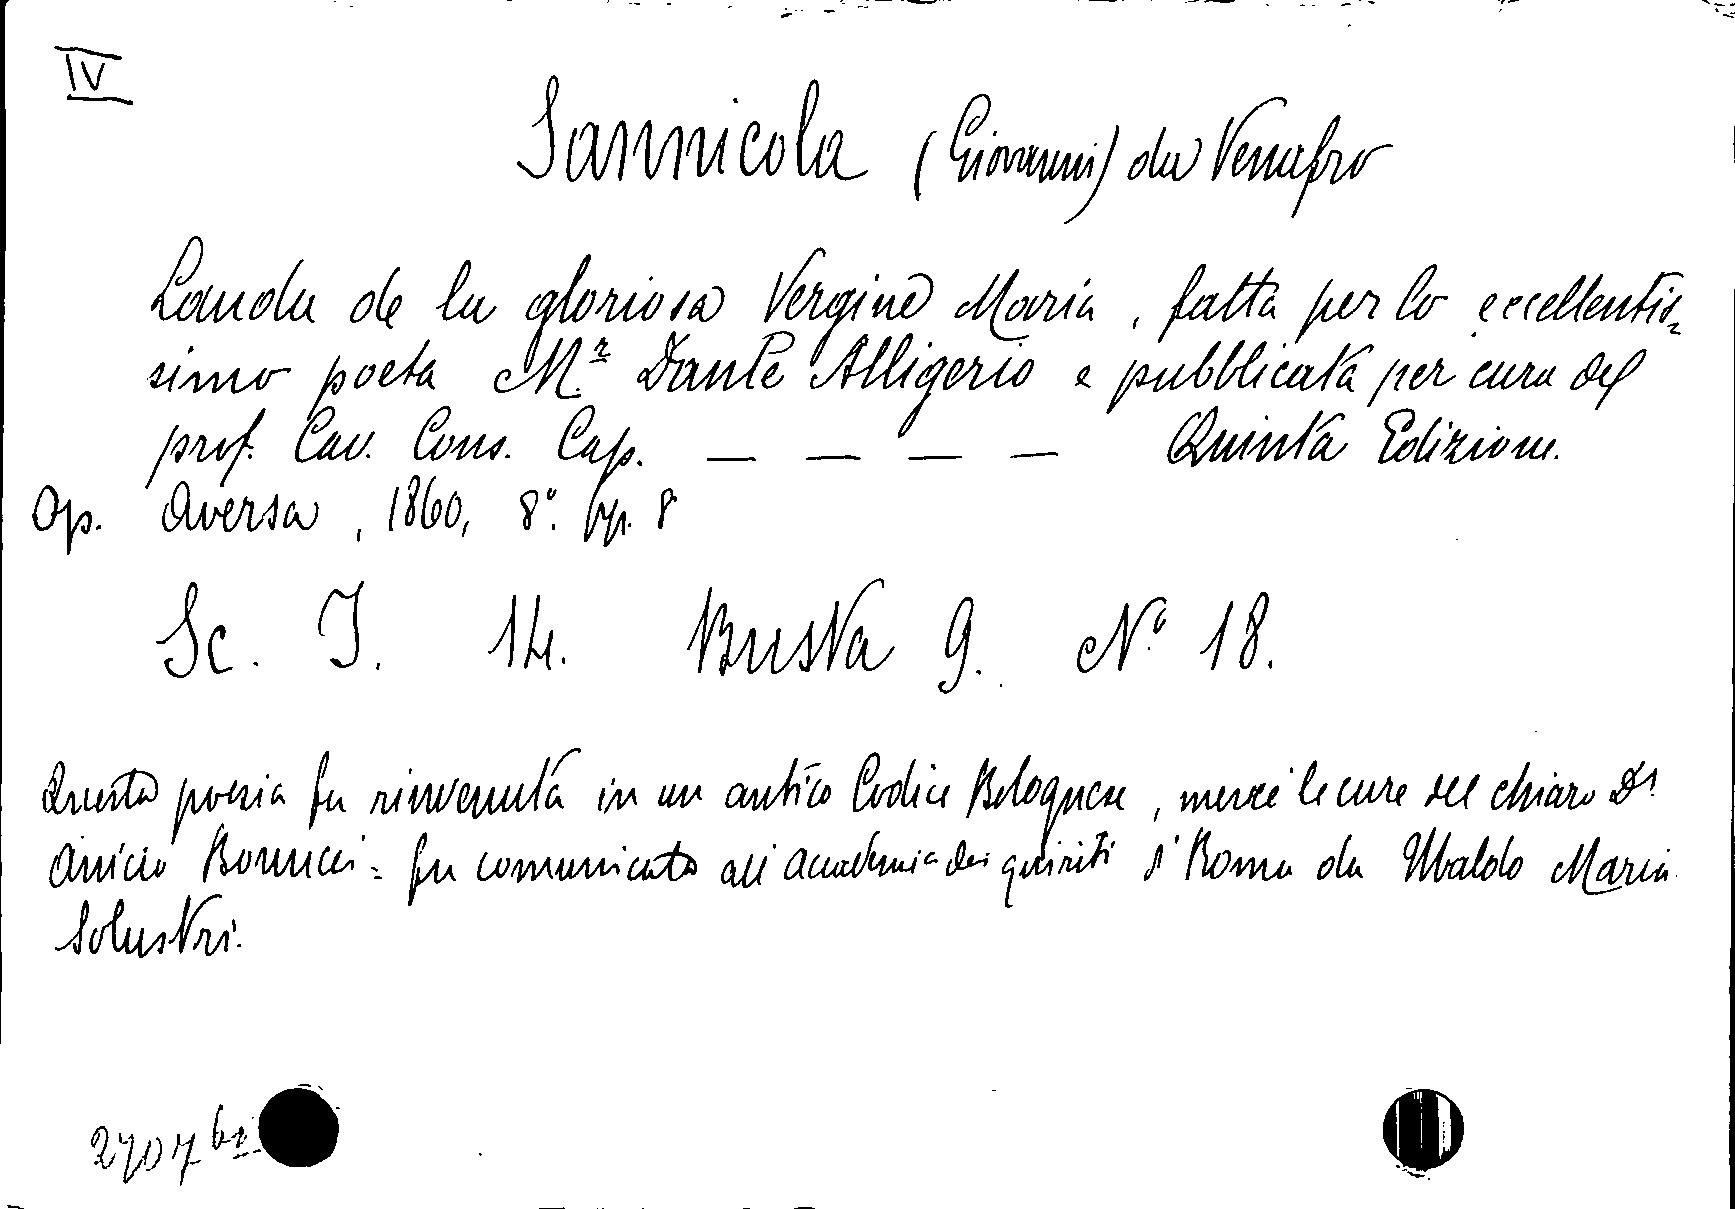 IV
Sannicola (Giovanni) da Venafro
Lauda de la gloriosa Vergine Maria, fatta per lo eccellentis=
simo poeta M.r Dante Alligerio e pubblicata per cura del
prof. Cav. Cons. Cap. — — — — Quinta Edizione.
Op. Aversa, 1860, 8°. pp. 8
Sc. I. 14. Busta 9. N° 18.
Questa poesia fu rinvenuta in un antico Codice Bolognese, mercé le cure del chiaro Dr
Anicio Bonucci = fu comunicata all'accademia dei quiriti d'Roma da Ubaldo Maria
Solustri.
2707 bis